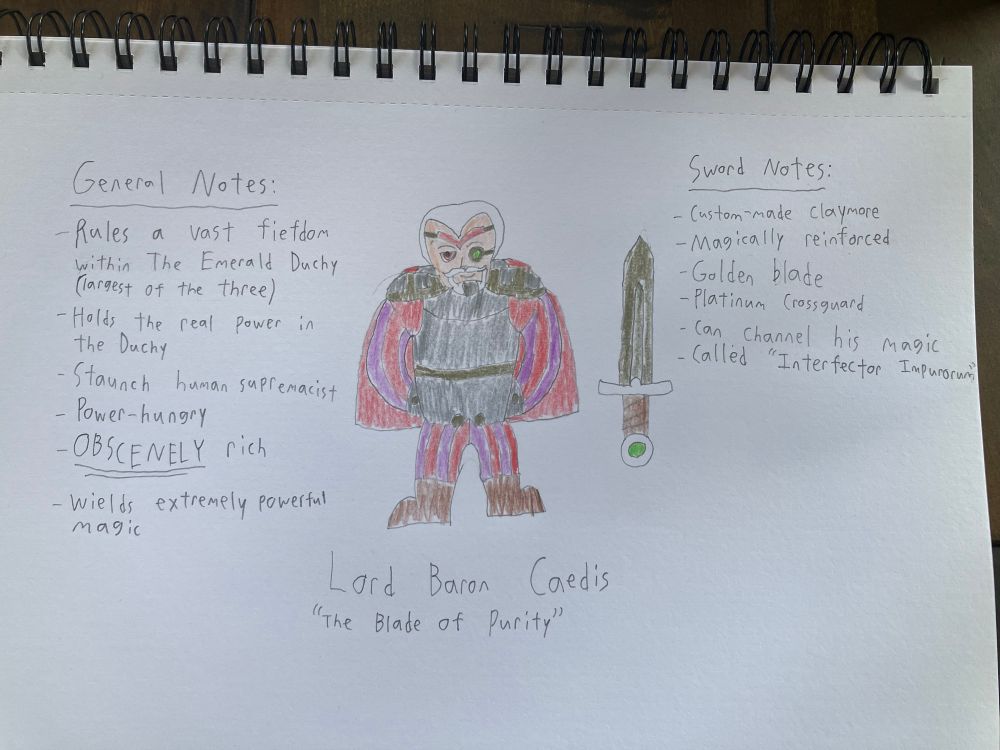 General Notes:
- Rules a vast fiefdom
within The Emerald Duchy
(largest of the three)
- Holds the real power in
the Duchy
- Staunch human supremacist
- Power-hungry
- OBSCENELY rich
- Wields extremely powerful
magic
Sword Notes:
- Custom-made claymore
- Magically reinforced
- Golden blade
- Platinum crossguard
- Can channel his magic
- Called "Interfector Impurorum"
Lord Baron Caedis
"The Blade of Purity"